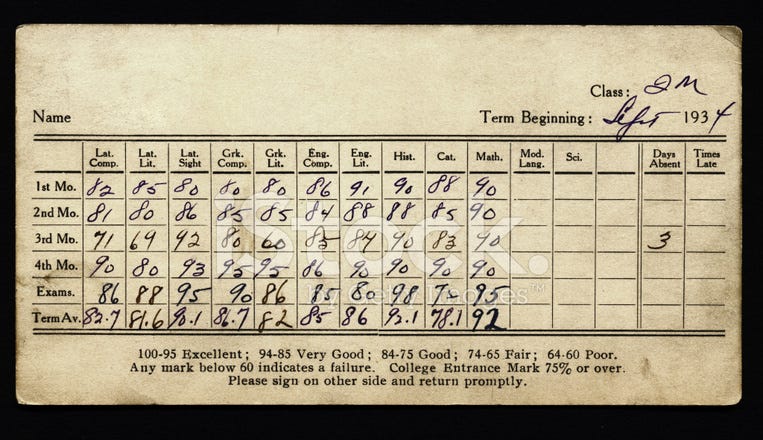 Class: 2M
Name Term Beginning: Sept 1934
Lat. Comp. Lat. Lit. Lat. Sight Grk. Comp. Grk. Lit. Eng. Comp. Eng. Lit. Hist. Cat. Math. Mod. Lang. Sci. Days Absent Times Late
1st Mo. 82 85 80 80 80 86 91 90 88 90
2nd Mo. 81 80 86 85 85 84 88 88 85 90
3rd Mo. 71 69 92 80 60 85 84 90 83 90 3
4th Mo. 90 80 93 95 95 86 90 90 90 90
Exams. 86 88 95 90 86 85 80 98 95
Term Av. 82.7 81.6 86.7 82 85 86 92.1 78.1 92
100-95 Excellent; 94-85 Very Good; 84-75 Good; 74-65 Fair; 64-60 Poor.
Any mark below 60 indicates a failure. College Entrance Mark 75% or over.
Please sign on other side and return promptly.
iStock.
by Getty Images™